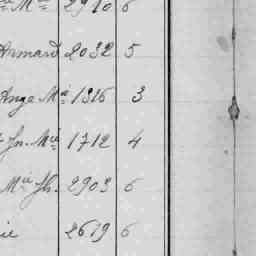 Mie 2910 6
Armand 2032 5
Ange Ma 1316 3
Jn. Mie 1712 4
Mie Jh. 2903 6
ie 2619 6